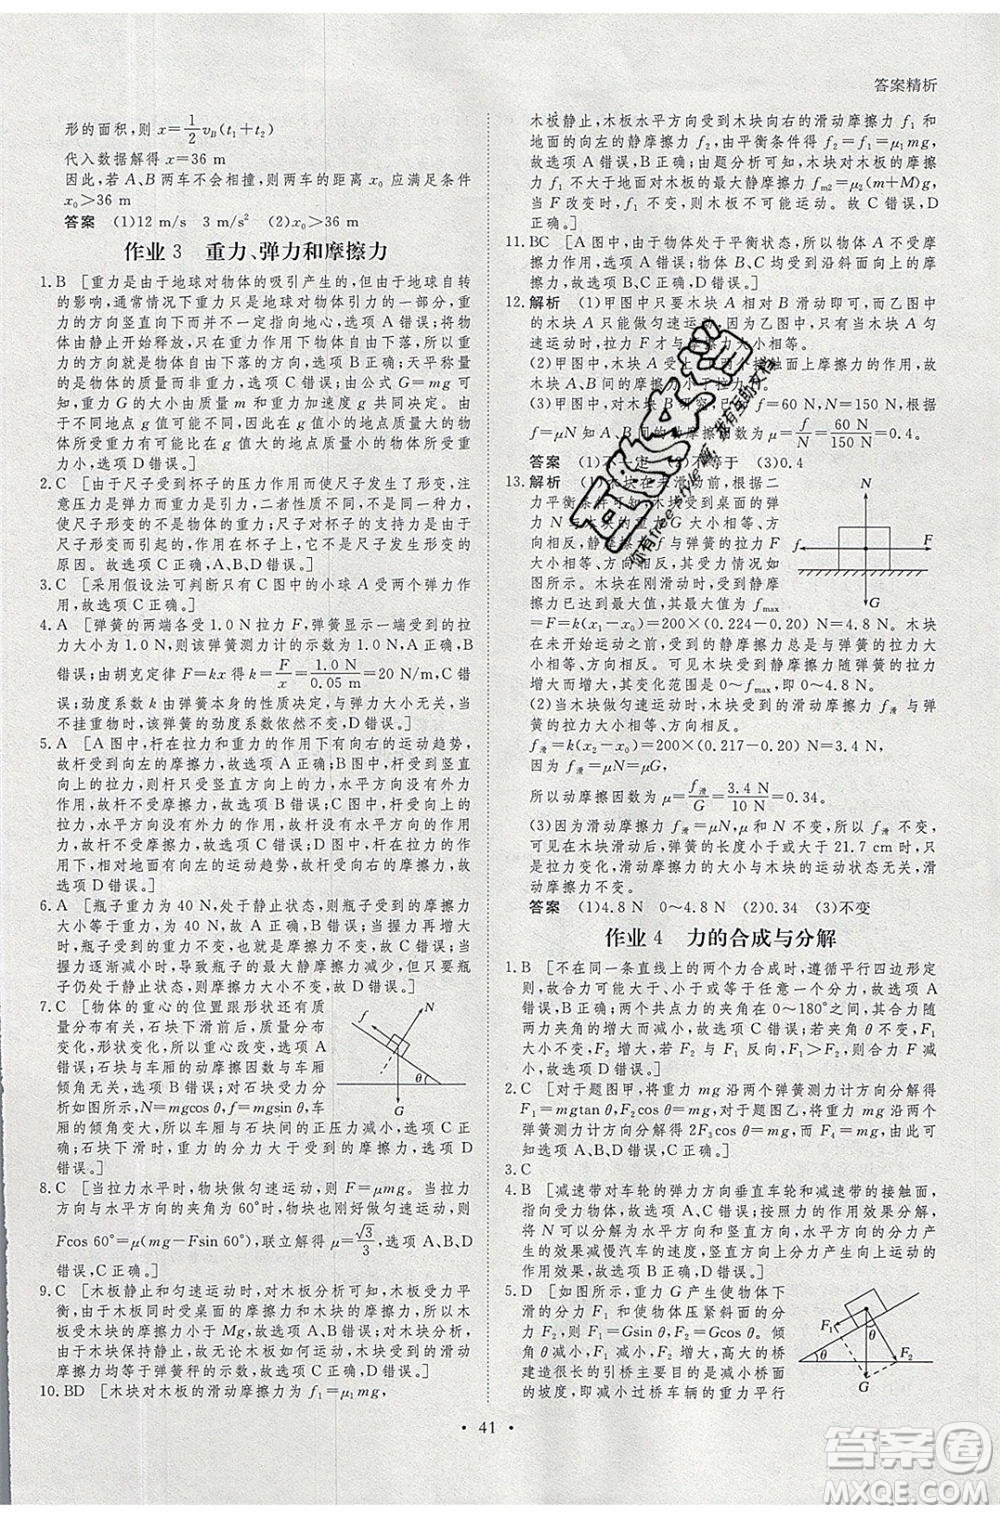 答案精析
形的面积，则 x=1/2 v_B(t₁+t₂)
代入数据解得 x=36 m
因此，若 A、B 两车不会相撞，则两车的距离 x₀ 应满足条件
x₀>36 m
答案 (1)12 m/s 3 m/s² (2)x₀>36 m
作业 3 重力、弹力和摩擦力
1. B [重力是由于地球对物体的吸引产生的，但由于地球自转
的影响，通常情况下重力只是地球对物体引力的一部分，重
力的方向竖直向下而不是始终指向地心，A、C 错误；将物
体由静止开始释放，即物体做自由落体运动时，由于只受重
力的方向就是物体自由下落的方向，选项 B 正确；天平称量
的是物体的质量，C 错误；由公式 G=mg 可
知，重力 G 的大小由质量 m 和重力加速度 g 共同决定。由
于质量大的物体在 g 值小的地点所受重力有
可能比在 g 值大的地点质量小的物体所受
重力小，故选项 D 错误。]
2. C [由于尺子受到杯子的压力而使尺子发生了形变，注
意压力是弹力，重力是引力，二者性质不同，A 错误；由
于尺子发生形变，对杯子有弹力，杯子对尺子的支持力是由
尺子形变而引起的，作用在杯子上，由于尺子发生形变的
原因，故选项 C 正确，B、D 错误。]
3. C [采用假设法可判断只有 C 图中的小球 A 受两个弹力作
用，故选项 C 正确。]
4. A [弹簧的两端各受 1.0 N 拉力 F，弹簧测力计显示一端受到的拉
力大小为 1.0 N，则该弹簧测力计的示数为 1.0 N，A 正确，B
错误；由胡克定律 F=kx 得 k=F/x=1.0 N/0.05 m=20 N/m，C 错
误；劲度系数由弹簧本身的性质决定，与弹力的大小无关，当
不挂重物时，该弹簧的劲度系数依然不变，D 错误。]
5. A [A 图中，杆在拉力和重力的作用下有向右的运动趋势，
故杆受到向左的摩擦力，选项 A 正确；B 图中，杆受到竖直向
上的拉力，则杆只受竖直方向的力，在水平方向没有运动趋
势，故杆不受摩擦力，选项 B 错误；C 图中，杆受到竖直向
上的拉力，水平方向没有力的作用，故杆不受摩擦力，
故选项 C 错误；D 图中，杆在重力和拉力的作用下，有
相对地面有向左的运动趋势，故杆受向右的摩擦力，故
选项 D 错误。]
6. A [瓶子重力为 40 N，处于静止状态，则瓶子受到的摩擦
力大小为 40 N，方向竖直向上，选项 A 正确；当握力再增大
时，瓶子受到的重力不变，摩擦力不变，选项 B、C 错误；若
握力减小，导致瓶子的最大静摩擦力减少，只要瓶
子仍处于静止状态，则摩擦力大小不变，选项 D 错误。]
7. C [物体的重心的位置跟形状还有质
量分布有关，石块下滑前后，质量分布
变化，形状变化，所以重心改变，选项 A
错误；石块间的动摩擦因数与车厢
倾角无关，选项 B 错误；石块受力
如图所示，N=mgcos θ，f=mgsin θ，
车厢的倾角变大，石块与车厢间的正压力减小，选
项 C 正确；石块下滑时，重力沿斜面方向的分力大于受到的摩擦力，选项 D
错误。]
8. C [当拉力水平时，物块做匀速运动，则 F=μmg，当拉力
方向与水平方向的夹角为 60° 时，物块也刚好做匀速运动，则
Fcos 60°=μ(mg−Fsin 60°)，联立解得 μ=√3/3，所以选项 A、B、
D 错误，C 正确。]
9. C [木板静止和匀速运动时，对木板分析可知，木板受力平
衡，由于木板同时受桌面的摩擦力和木块的摩擦力，则
桌面受木块的摩擦力小于 Mg，故 A、B 错误；对木块分析，
木块受拉力和摩擦力，无论木板如何运动，木块受到的
摩擦力均等于弹簧秤的示数，故 C 正确，D 错误。]
10. BD [木块对木板的滑动摩擦力 f₁=μ₁mg，
木板静止，木板水平方向受到木块向右的滑动摩擦力 f₁ 和
地面的向左的静摩擦力 f₂，由平衡条件可知 f₂=f₁=μ₁mg，
故选项 A 错误，B 正确；由题分析可知，木块对木板的摩擦
力 f₁ 不大于地面对木板的最大静摩擦力 f_m2=μ₂(m+M)g，
当 F 改变时，f₁ 不变，则木板不可能运动，故选项 C 错误，D 正确。]
11. BC [A 图中，由于物体处于平衡状态，所以物体 A 不受摩
擦力，物体 B、C 均受到沿斜面向上的摩擦
力，物体 D 不受摩擦力。]
12. 解析 (1)甲图中只要木块 A 相对木块 B 滑动即可，而乙图中
的木块 A 只能做匀速运动，因为乙图中，只有木块 A 匀
速运动，拉力 F 才与摩擦力相等。
(2)甲图中，木块 A、B 之间的接触面上摩擦力的作用，故
木块 A、B 间的摩擦力不等于拉力 F。
(3)甲图中，对木块 B 研究，已知 f=60 N，N=150 N，根据
f=μN 知 A、B 间的动摩擦因数为 μ=f/N=60 N/150 N=0.4。
答案 (1)不一定 (2)不等于 (3)0.4
13. 解析 (1)木块未滑动前，根据二
力平衡条件可知，木块的重力 G 大小相等，
静摩擦力与弹簧的拉力 F
大小相等，方向相反，受力情况如
图所示。木块在刚滑动时，受到静摩
擦力达到最大值，其最大值 f_max
=k(x₁−x₀)=200×(0.224−0.20) N=4.8 N。木块
在未开始运动之前静摩擦力总是与弹簧的拉力大小相
等、方向相反。可见，随着弹簧拉力的增大，静摩擦力也增
大，所以静摩擦力的变化范围是 0～f_max，即 0～4.8 N。
(2)当木块做匀速运动时，木块受到的滑动摩擦力 f滑 与弹
簧的拉力大小相等、方向相反。
f滑=k(x₂−x₀)=200×(0.217−0.20) N=3.4 N
因为 f滑=μN=μG，
所以动摩擦因数 μ=f滑/G=3.4 N/10 N=0.34。
(3)因为滑动摩擦力 f滑=μN，μ 和 N 不变，所以 f滑 不变，
可见在木块滑动后，弹簧的长度不等于 21.7 cm 时，弹簧的
拉力变化，滑动摩擦力的大小与木块运动的速度大小无关，滑动摩擦力不变。
答案 (1)4.8 N 0～4.8 N (2)0.34 (3)不变
作业 4 力的合成与分解
1. B [不在同一条直线上的两个力合成时，遵循平行四边形定
则，故合力可能大于、小于或等于任意一个分力，选项 A
错误，B 正确；两个共点力的夹角在 0～180° 变化时，合力随
两力夹角的增大而减小，选项 C 错误；若夹角 θ 不变，F₁
大小不变，F₂ 增大，若为钝角，且 F₁>F₂，则合力 F 可能减
小，故选项 D 错误。]
2. C [对于题图甲，将重力 mg 沿两个弹簧测力计方向分解得
F₁=mgtan θ，F₂cos θ=mg，对于题图乙，重力 mg 沿两个
弹簧测力计方向分解得 2F₃cos θ=mg，
选项 A、B、D 错误，C 正确。]
3. C
4. B [减速带对车轮的弹力方向垂直车轮和减速带的接触面，
指向受力物体，故选项 A、C 错误；按照力的作用效果分解，
将 N 可以分解为水平方向和竖直方向，水平方向的分力产生
的效果减慢汽车的速度，竖直方向上分力产生向上运动的
作用效果，故选项 B 正确，D 错误。]
5. D [如图所示，重力 G 产生使物体下
滑的分力 F₁ 和使物体压紧斜面的分力
F₂，则 F₁=Gsin θ，F₂=Gcos θ，θ 增
大时，F₁ 增大，F₂ 减小，高大的桥
建造很长的引桥主要目的是减小桥面
的坡度，即减小过桥车辆的重力平行
• 41 •
答案卷
WWW.MXQE.COM